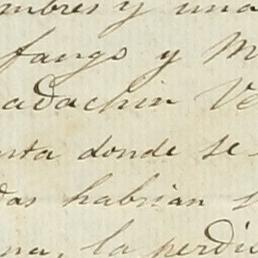 mbres y una
fango y M
adachin Ve
sta donde se
das habrian s
na, la perdi